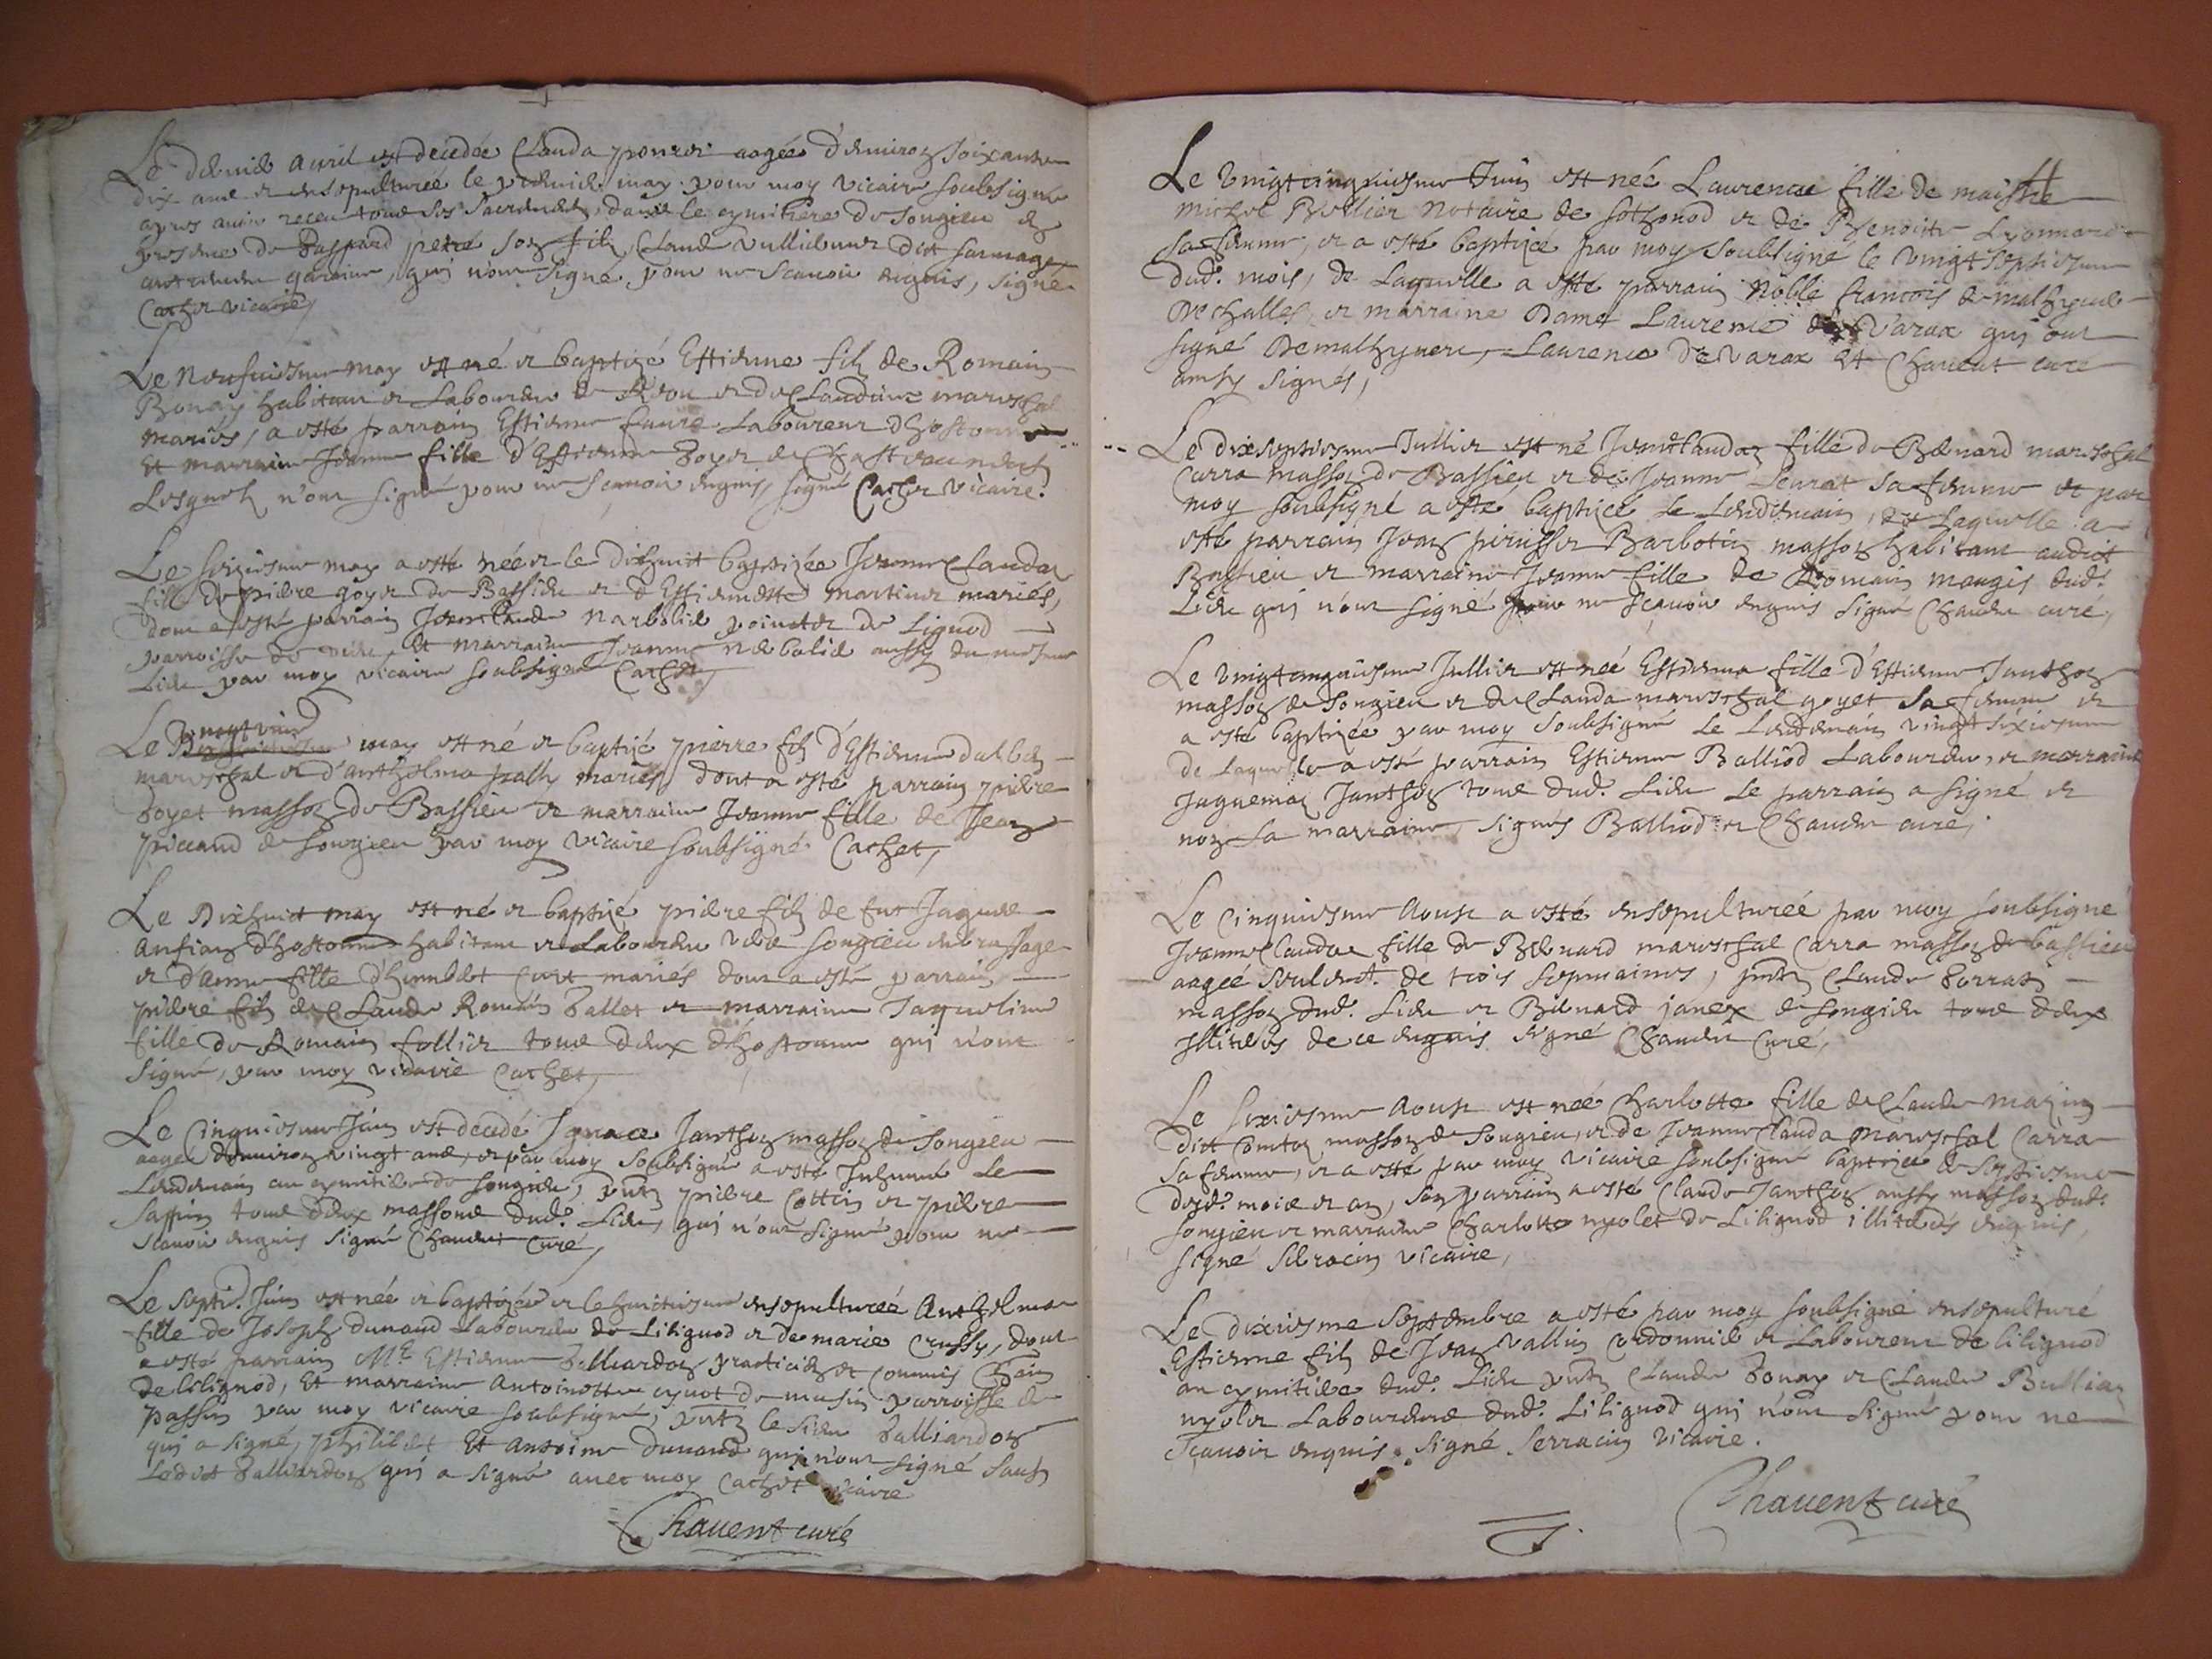 Le dernier auril est decedée Clauda ponset aagée d'enuiron soixante
dix ans et ensepulturée le premier may par moy vicaire soubsigné
apres auoir receu tous ses sacrements, dans le cymitiere de Songieu en
presence de Gaspard petré son filz, Claude Vulliemer dict sarmage
qui n'ont signé pour ne scauoir enquis, signé
Cachet vicaire,
Le neufuiesme may est né et baptizé Estienne filz de Romain
Bonay habitant et Laboureur et de Claudine mareschal
mariés, a esté parrain Estienne faure Laboureur d'hostonne
Et marraine Jeanne fille d'Estienne Goyet
Lesquelz n'ont signé pour ne scauoir enquis, signé Cachet vicaire.
Le seiziesme may a esté née et le dixhuit baptizée Jeanne Clauda
fille de pierre goyet de Bassieu et d'Estiennette martinet mariés,
dont a esté parrain Jean Claude Narbolier de Lignod
parroisse de Et marraine Jeanne Narbolier aussy du mesme
Lieu par moy vicaire soubsigné Cachet,
Le vingt may est né et baptizé pierre filz d'Estienne
mareschal et d'anthelma mariés, dont a esté parrain pierre
Goyet masson de Bassieu et marraine Jeanne fille de Jean
piccand de Songieu par moy vicaire soubsigné Cachet,
Le Dixhuict may est né et baptizé pierre filz de feu Jaques
Anfian d'hostonne habitant et Laboureur Songieu
et d'Anne fille d'humblot Curt mariés dont a esté parrain
pierre filz de Claude Romain Ballet et marraine Jaqueline
fille de Romain follier tous deux d'hostonne qui n'ont
signé, par moy vicaire Cachet,
Le Cinquiesme Juin est decedé Ignace Janthon masson de Songieu
aagé d'enuiron vingt ans, et par moy soubsigné a esté Inhumé Le
Lendemain au cymitiere de Songieu, pntz pierre Cottin et pierre
Saffin tous deux massons dud. Lieu, qui n'ont signé pour ne
scauoir enquis signé Chauent Curé,
Le septie. Juin est née et baptizée et le huictiesme ensepulturée Anthelma
fille de Joseph dunand Laboureur de Lilignod et de marie Crussy, dont
a esté parrain Me. Estienne Balliardon praticien et commis
de lilignod, Et marraine Antoinette cynot de musin parroisse de
passin par moy vicaire soubsigné, pntz le sieur Balliardon
qui a signé, philibert Et Antoine dunand qui n'ont signé sauf
Ledit Balliardon qui a signé auec moy Cachet vicaire
Chauent curé
Le vingtcinquiesme Juin est née Laurence fille de maistre
michel Bollier Notaire de Sothonod et de Benoitte Lyonnard
sa femme, et a esté baptizée par moy soubsigné le vingtseptiesme
dud. mois, de Laquelle a esté parrain Noble francois de malhyuert
De challes, et marraine Dame Laurence de Varax qui ont
signé Demalhyuert, Laurence De Varax Et Chauent curé
ainsy signés,
Le dixseptiesme Jullier est né Jeane Clauda fille de Bernard mareschal
Carra masson de Bassieu et de Jeanne Seurat sa femme et par
moy soubsigné a esté baptizée Le Lendemain, de Laquelle a
esté parrain Jean perusset Barbotin masson habitant audict
Bassieu et marraine Jeanne fille de Romain mongis dud.
Lieu qui n'ont signé pour ne scauoir enquis signé Chauent curé,
Le vingtcinquiesme Jullier est née Estienna fille d'Estienne Janthon
masson de Songieu et de Clauda mareschal goyet sa femme et
a esté baptizée par moy soubsigné Le Lendemain vingt sixiesme
de Laquelle a esté parrain Estienne Balliod Laboureur, et marraine
Jaquema Janthon tous dud. Lieu Le parrain a signé et
non La marraine, signés Balliod et Chauent curé,
Le Cinquiesme Aoust a esté ensepulturée par moy soubsigné
Jeanne Clauda fille de Bernard mareschal Carra masson de bassieu
aagée seulemt. de trois sepmaines, pntz Claude Borrat
masson dud. Lieu et Bernard janex de Songieu tous deux
Illiterés de ce enquis signé Chauent Curé,
Le sixiesme Aoust est née Charlotte fille de Claude Mazuin
dict masson de Songieu, et de Jeanne Clauda mareschal Carra
sa femme, et a esté par moy vicaire soubsigné baptizée le septiesme
desd. mois et an, son parrain a esté Claude Janthon aussy masson dud.
Songieu et marraine Charlotte nyolet de Lilignod illiterés enquis,
signé Serracin vicaire,
Le dixiesme Septembre a esté par moy soubsigné ensepulturé
Estienne filz de Jean Vallin cordonnier et Laboureur de lilignod
au cymitiere dud. Lieu pntz Claude Bonay et Claude Bullian
nyolet Laboureurs dud. Lilignod qui n'ont signé pour ne
scauoir enquis. signé Serracin vicaire.
Chauent curé